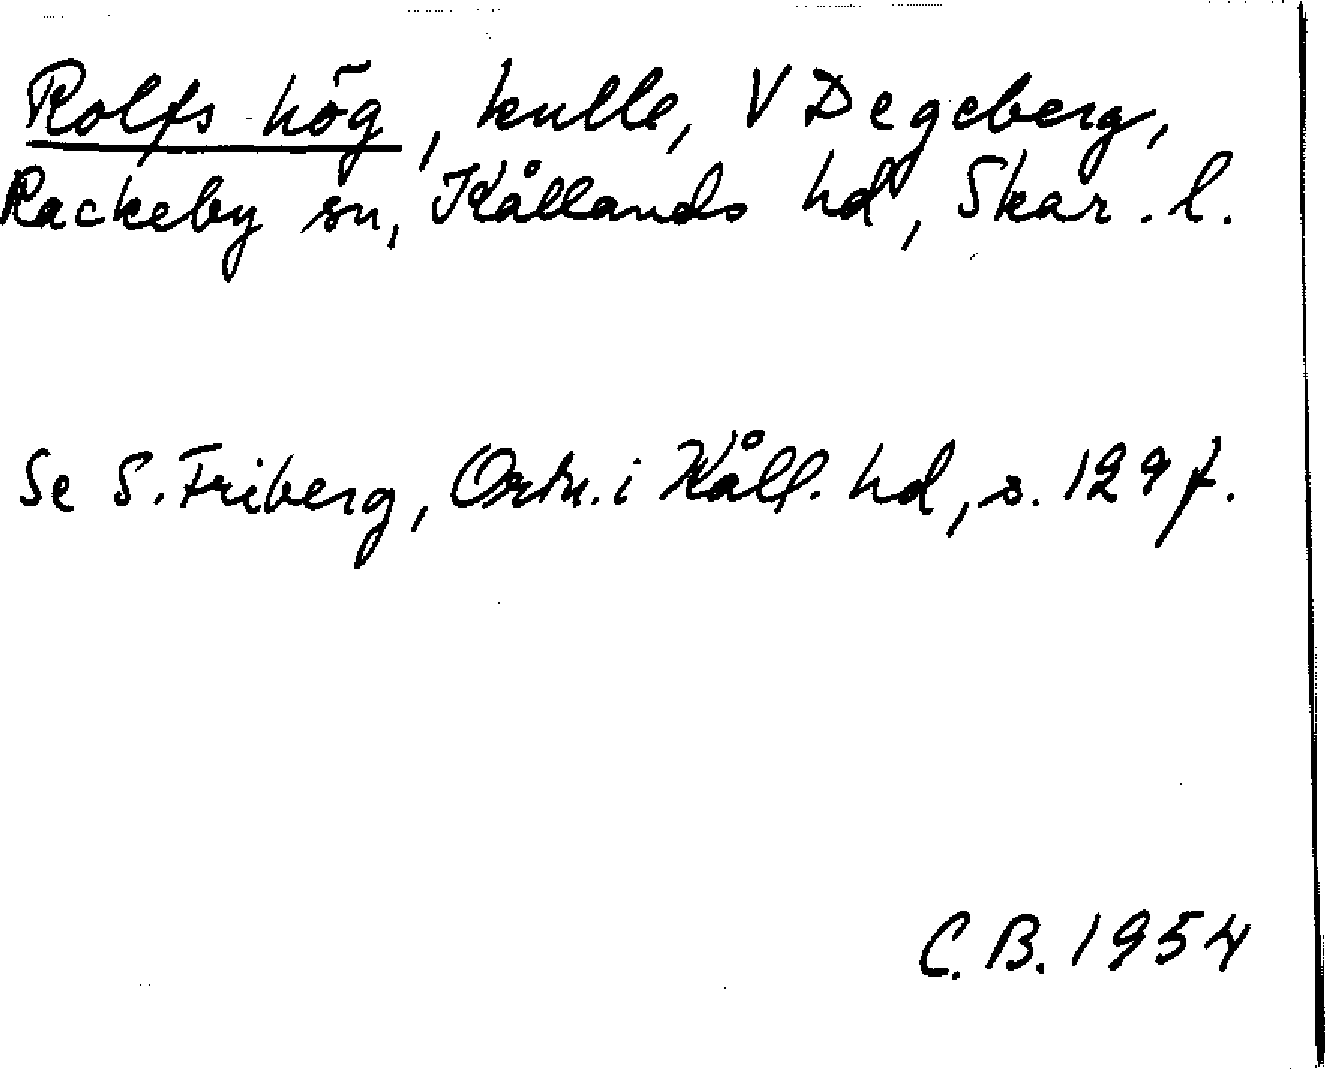 Rolfs hög, kulle, V Degeberg,
Rackeby sn, Kållands hd, Skar. l.
Se S. Friberg, Ortn. i Kåll. hd, s. 129 f.
C. B. 1954